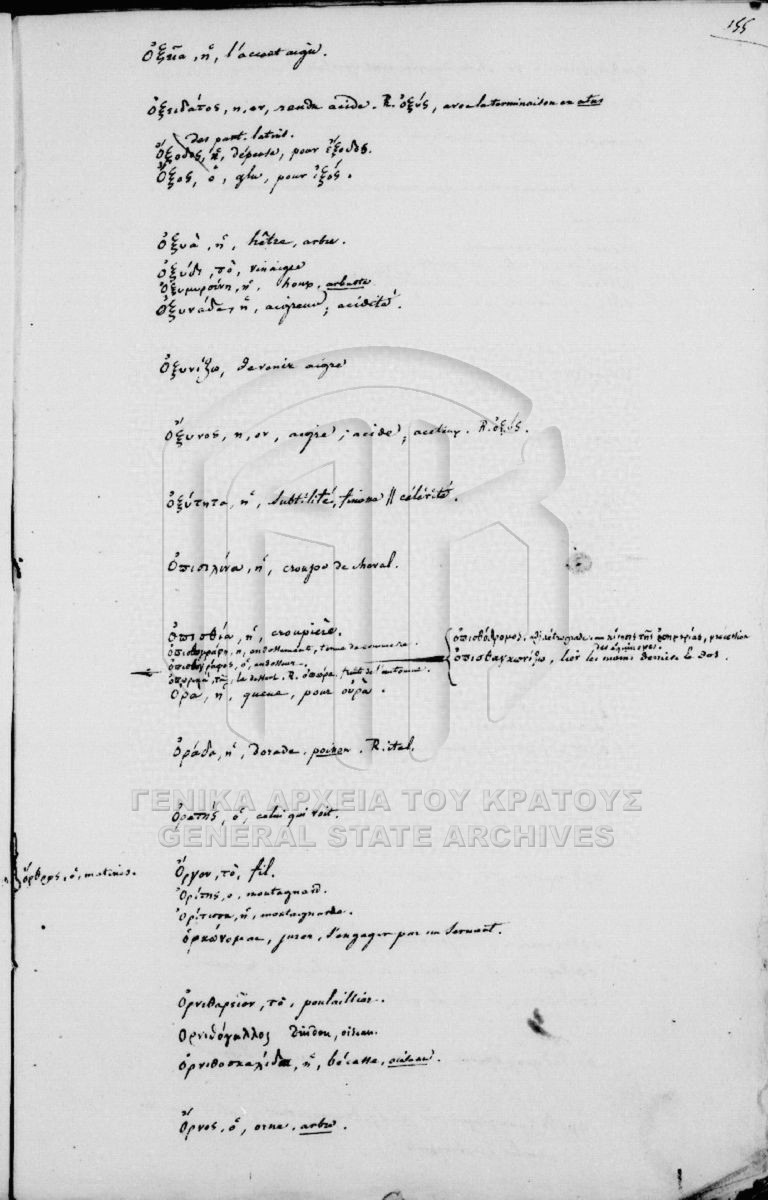 155
ὀξεῖα, ἡ, l'accent aigu.
ὀξειδάτος, η, ον, rendu acide. R. ὀξύς, avec la terminaison en atus
des part. latins.
ὄξοδος, ἡ, dépense, pour ἔξοδος.
ὀξός, ὁ, glu, pour ἰξός.
ὀξυὰ, ἡ, hêtre, arbre.
ὀξύδι, τὸ, vinaigre
ὀξυμυρσίνη, ἡ, houx, arbuste
ὀξυνάδα, ἡ, aigreur; acidité.
ὀξυνίζω, devenir aigre
ὄξυνος, η, ον, aigre; acide; acéteux. R. ὀξύς.
ὀξύτητα, ἡ, subtilité, finesse || célérité.
ὀπισιλίνα, ἡ, croupe de cheval.
ὀπισθία, ἡ, croupière.
ὀπισθογράφη, ἡ, endossement, terme de commerce.
ὀπισθογράφος, ὁ, endosseur.
ὀπωρικά, τὰ, le dessert. R. ὀπώρα, fruit de l'automne.
ὀρα, ἡ, queue, pour οὐρὰ.
ὀπισθόδρομος, κίνησις τῆς ἰσημερίας, précession
des équinoxes.
ὀπισθαγκωνίζω, lier les mains derrière le dos.
ὀράδα, ἡ, dorade, poisson. R. ital.
ὁρατής, ὁ, celui qui voit.
ΓΕΝΙΚΑ ΑΡΧΕΙΑ ΤΟΥ ΚΡΑΤΟΥΣ
GENERAL STATE ARCHIVES
ὄρθρος, ὁ, matines.
ὄργον, τὸ, fil.
ὀρίτης, ὁ, montagnard.
ὀρίτισσα, ἡ, montagnarde.
ὁρκώνομαι, jurer, s'engager par un serment.
ὀρνιθαρεῖον, τὸ, poulaillier.
ὀρνιθόγαλλος dindon, oiseau.
ὀρνιθοσκαλίδα, ἡ, bécasse, oiseau.
ὄρνος, ὁ, orne, arbre.